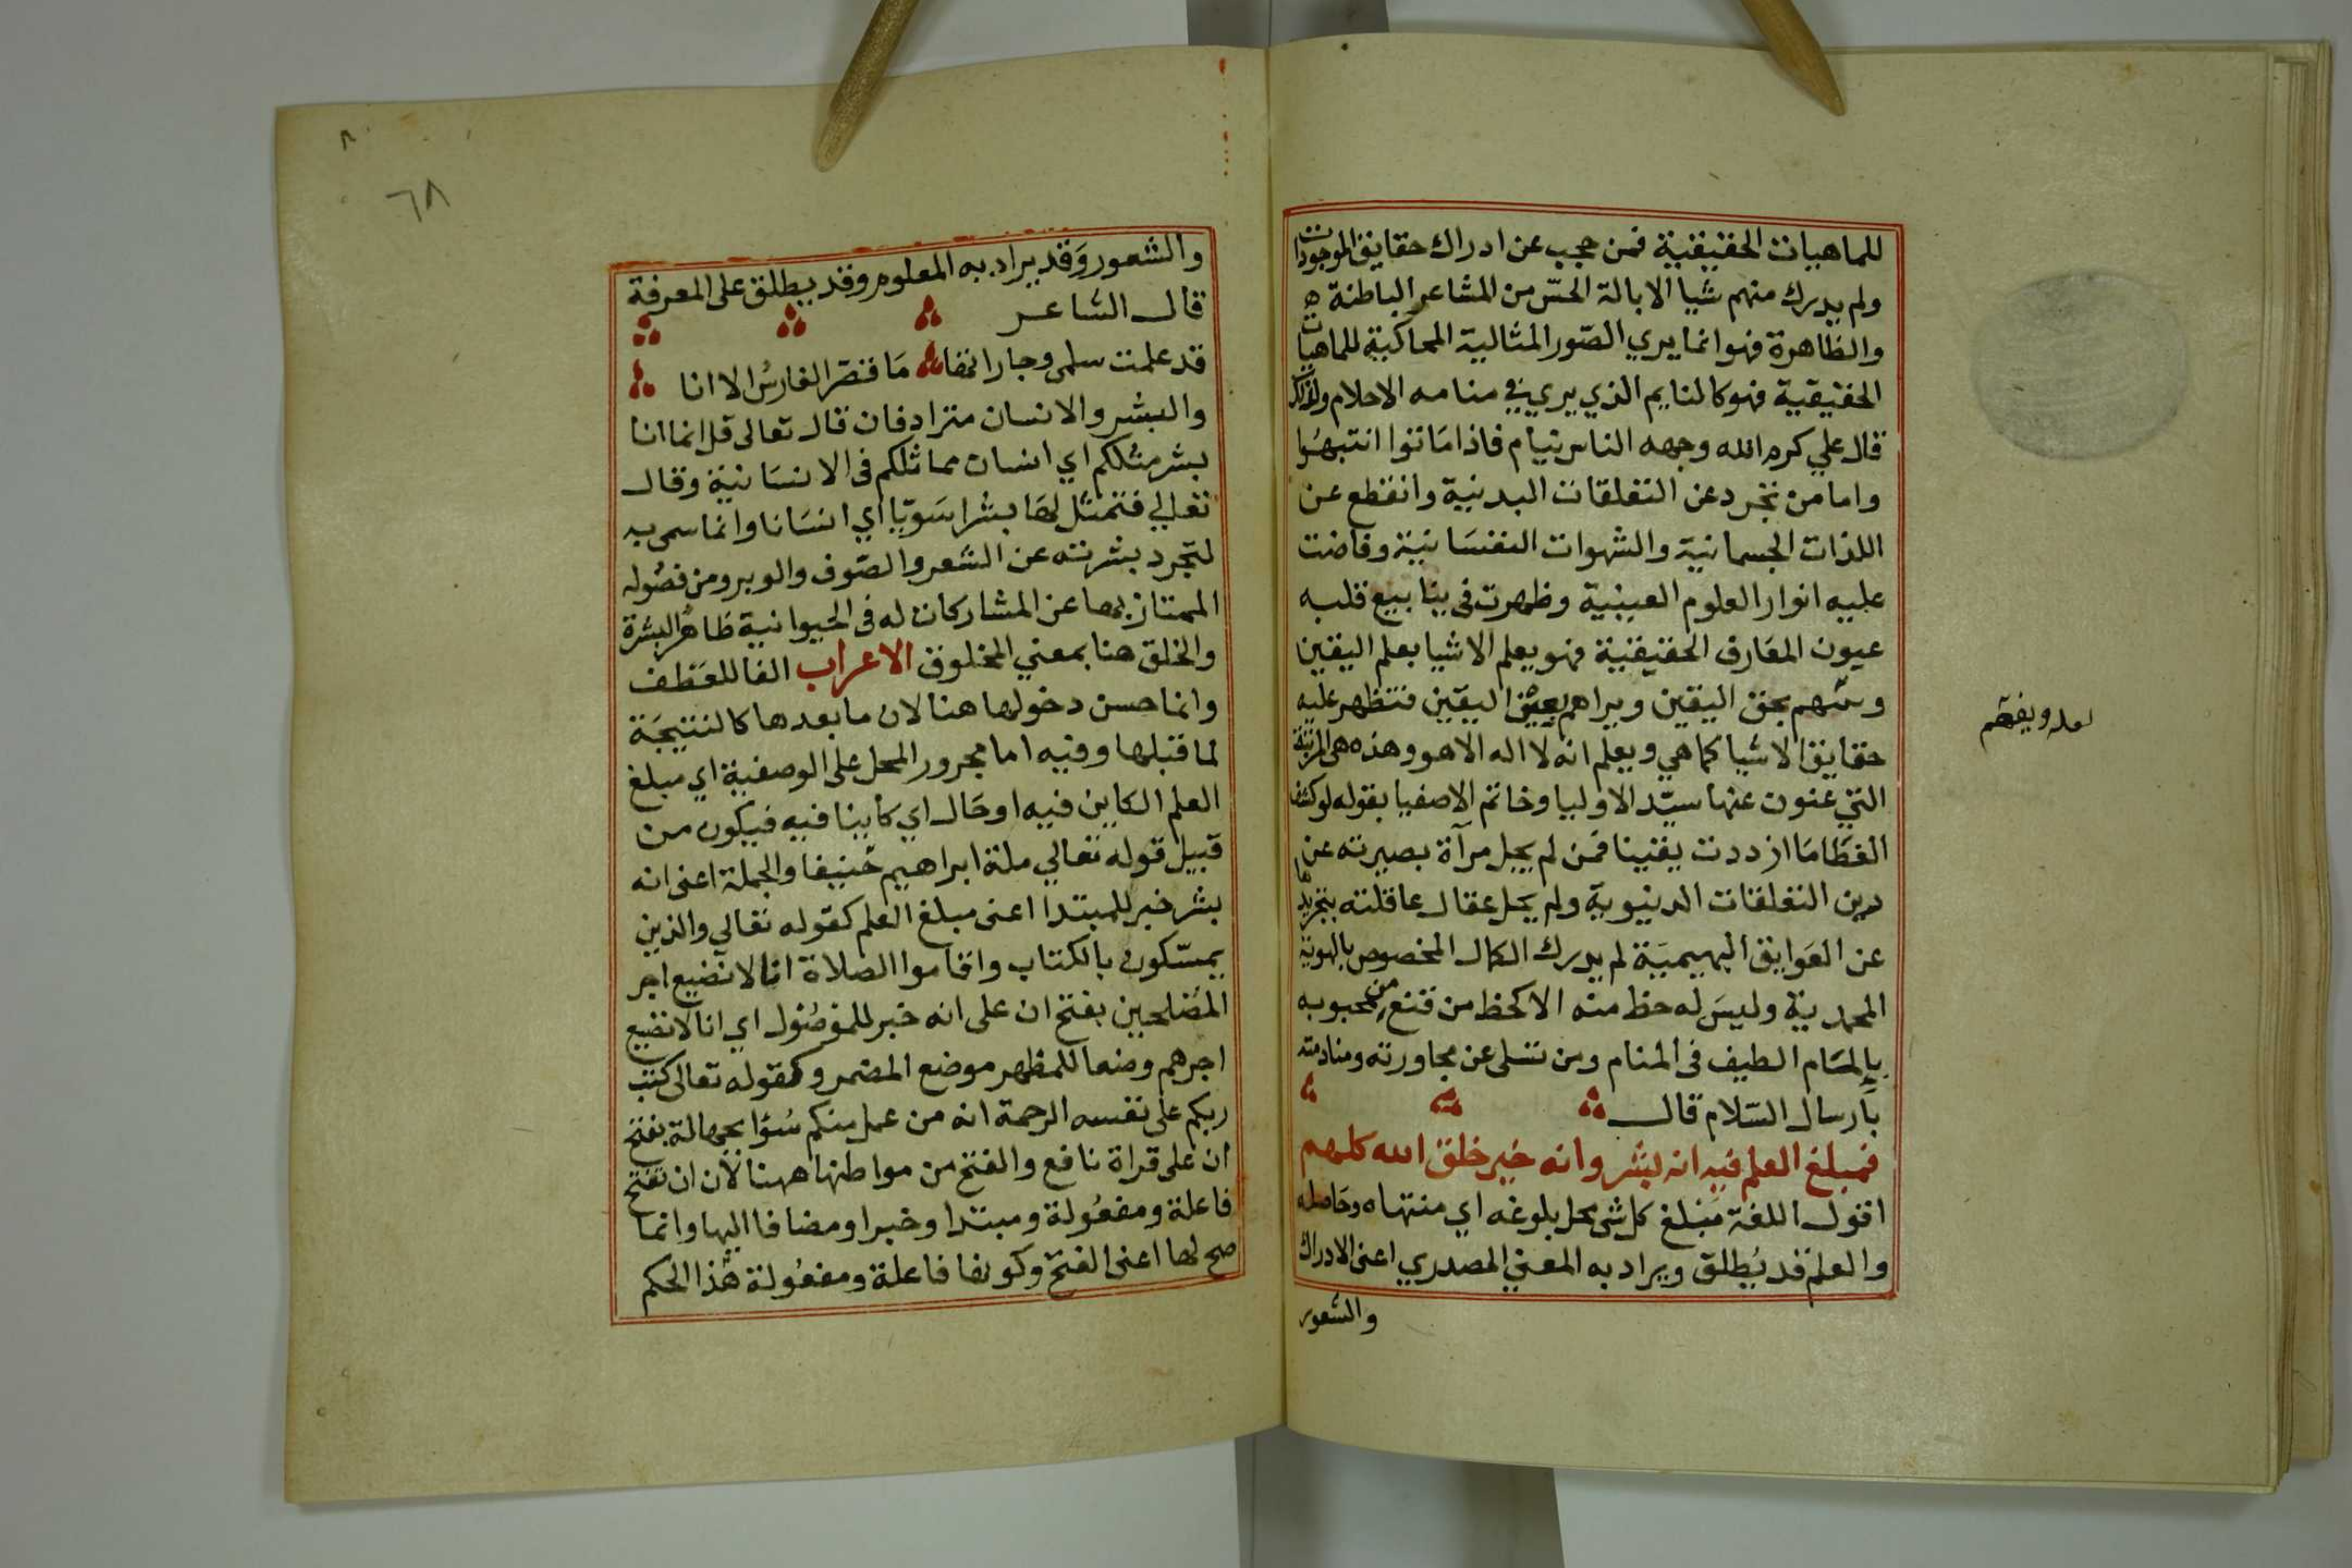 للماهيات الحقيقية فمن حجب عن ادراك حقايق الموجودات
ولم يدرك منهم شيا الا بالة الحس من المشاعر الباطنة
والظاهرة فهو انما يري الصور المثالية المحاكية للماهيات
الحقيقية فهو كالنايم الذي يري في منامه الاحلام ولذلك
قال علي كرم الله وجهه الناس نيام فاذا ماتوا انتبهوا
واما من تجرد عن التعلقات البدنية وانقطع عن
اللذات الجسمانية والشهوات النفسانية وفاضت
عليه انوار العلوم الغيبية وظهرت فى ينابيع قلبه
عيون المعارف الحقيقية فهو يعلم الاشيا بعلم اليقين
بحق اليقين ويراهم بعين اليقين فتظهر عليه
حقايق الاشيا كما هي ويعلم انه لا اله الا هو وهذه هى المرتبة
التي عنون عنها سيد الاوليا وخاتم الاصفيا بقوله لو كشف
الغطا ما ازددت يقينا فمن لم يجل مرآة بصيرته عن
درن التعلقات الدنيوية ولم يحل عقال عاقلته بتجريدها
عن العوايق البهيمية لم يدرك الكمال المخصوص بالهوية
المحمدية وليس له حظ منه الا كحظ من قنع من محبوبه
بالمام الطيف فى المنام ومن تسلى عن مجاورته ومنادمته
بارسال السلام قال
فمبلغ العلم فيه انه بشر وانه خير خلق الله كلهم
اقول اللغة مبلغ كل شى محل بلوغه اي منتهاه وحاصله
والعلم قد يطلق ويراد به المعني المصدري اعنى الادراك
والشعور
لعله ويفهم
٨
٦٨
والشعور وقد يراد به المعلوم وقد يطلق على المعرفة
قال الشاعر
قد علمت سلمى وجاراتها ما قنطر الفارس الا انا
والبشر والانسان مترادفان قال تعالى قل انما انا
بشر مثلكم اي انسان مماثلكم فى الانسانية وقال
تعالي فتمثل لها بشرا سويا اي انسانا وانما سمى به
لتجرد بشرته عن الشعر والصوف والوبر ومن فصوله
الممتاز بها عن المشاركات له فى الحيوانية ظاهر البشرة
والخلق هنا بمعني المخلوق الاعراب الفا للعطف
وانما حسن دخولها هنا لان ما بعدها كالنتيجة
لما قبلها وفيه اما مجرور المحل على الوصفية اي مبلغ
العلم الكاين فيه او حال اي كاينا فيه فيكون من
قبيل قوله تعالي ملة ابراهيم حنيفا والجملة اعنى انه
بشر خبر للمبتدا اعنى مبلغ العلم كقوله تعالي والذين
يمسكون بالكتاب واقاموا الصلاة انا لا نضيع اجر
المصلحين بفتح ان على انه خبر للموصول اي انا لا نضيع
اجرهم وضعا للمظهر موضع المضمر وكقوله تعالى كتب
ربكم على نفسه الرحمة انه من عمل منكم سؤا بجهالة بفتح
ان على قراة نافع والفتح من مواطنها ههنا لان ان تفتح
فاعلة ومفعولة ومبتدا وخبرا ومضافا اليها وانما
صح لها اعنى الفتح وكونها فاعلة ومفعولة هذا الحكم